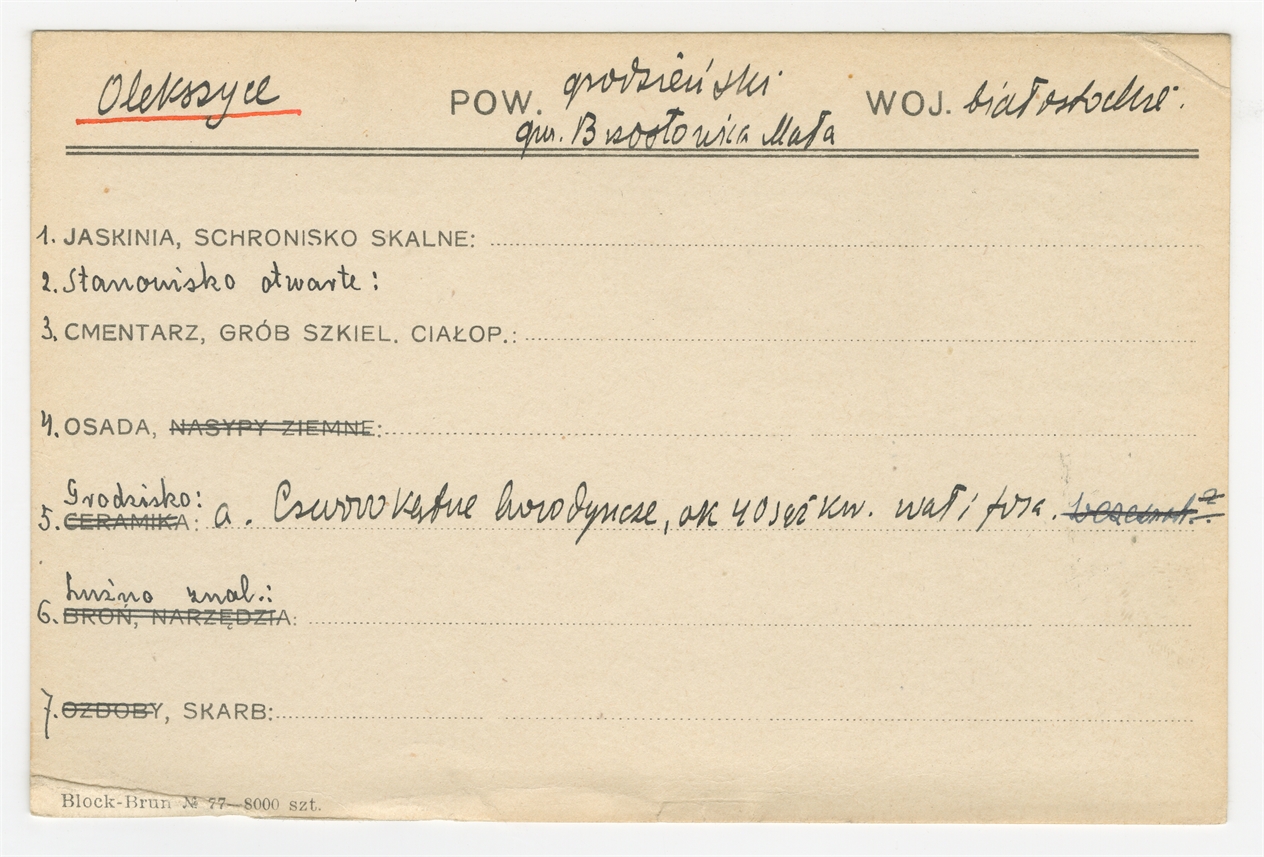 Olekszyce POW. grodzieński WOJ. białostockie.
gm. Brzostowica Mała
1. JASKINIA, SCHRONISKO SKALNE:
2. Stanowisko otwarte:
3. CMENTARZ, GRÓB SZKIEL. CIAŁOP.:
4. OSADA, NASYPY ZIEMNE:
Grodzisko:
5. CERAMIKA: a. Czworokątne horodyszcze, ok 40 sąż kw. wał i fosa.
Luźno znal.:
6. BROŃ, NARZĘDZIA:
7. OZDOBY, SKARB:
Block-Brun № 77—8000 szt.